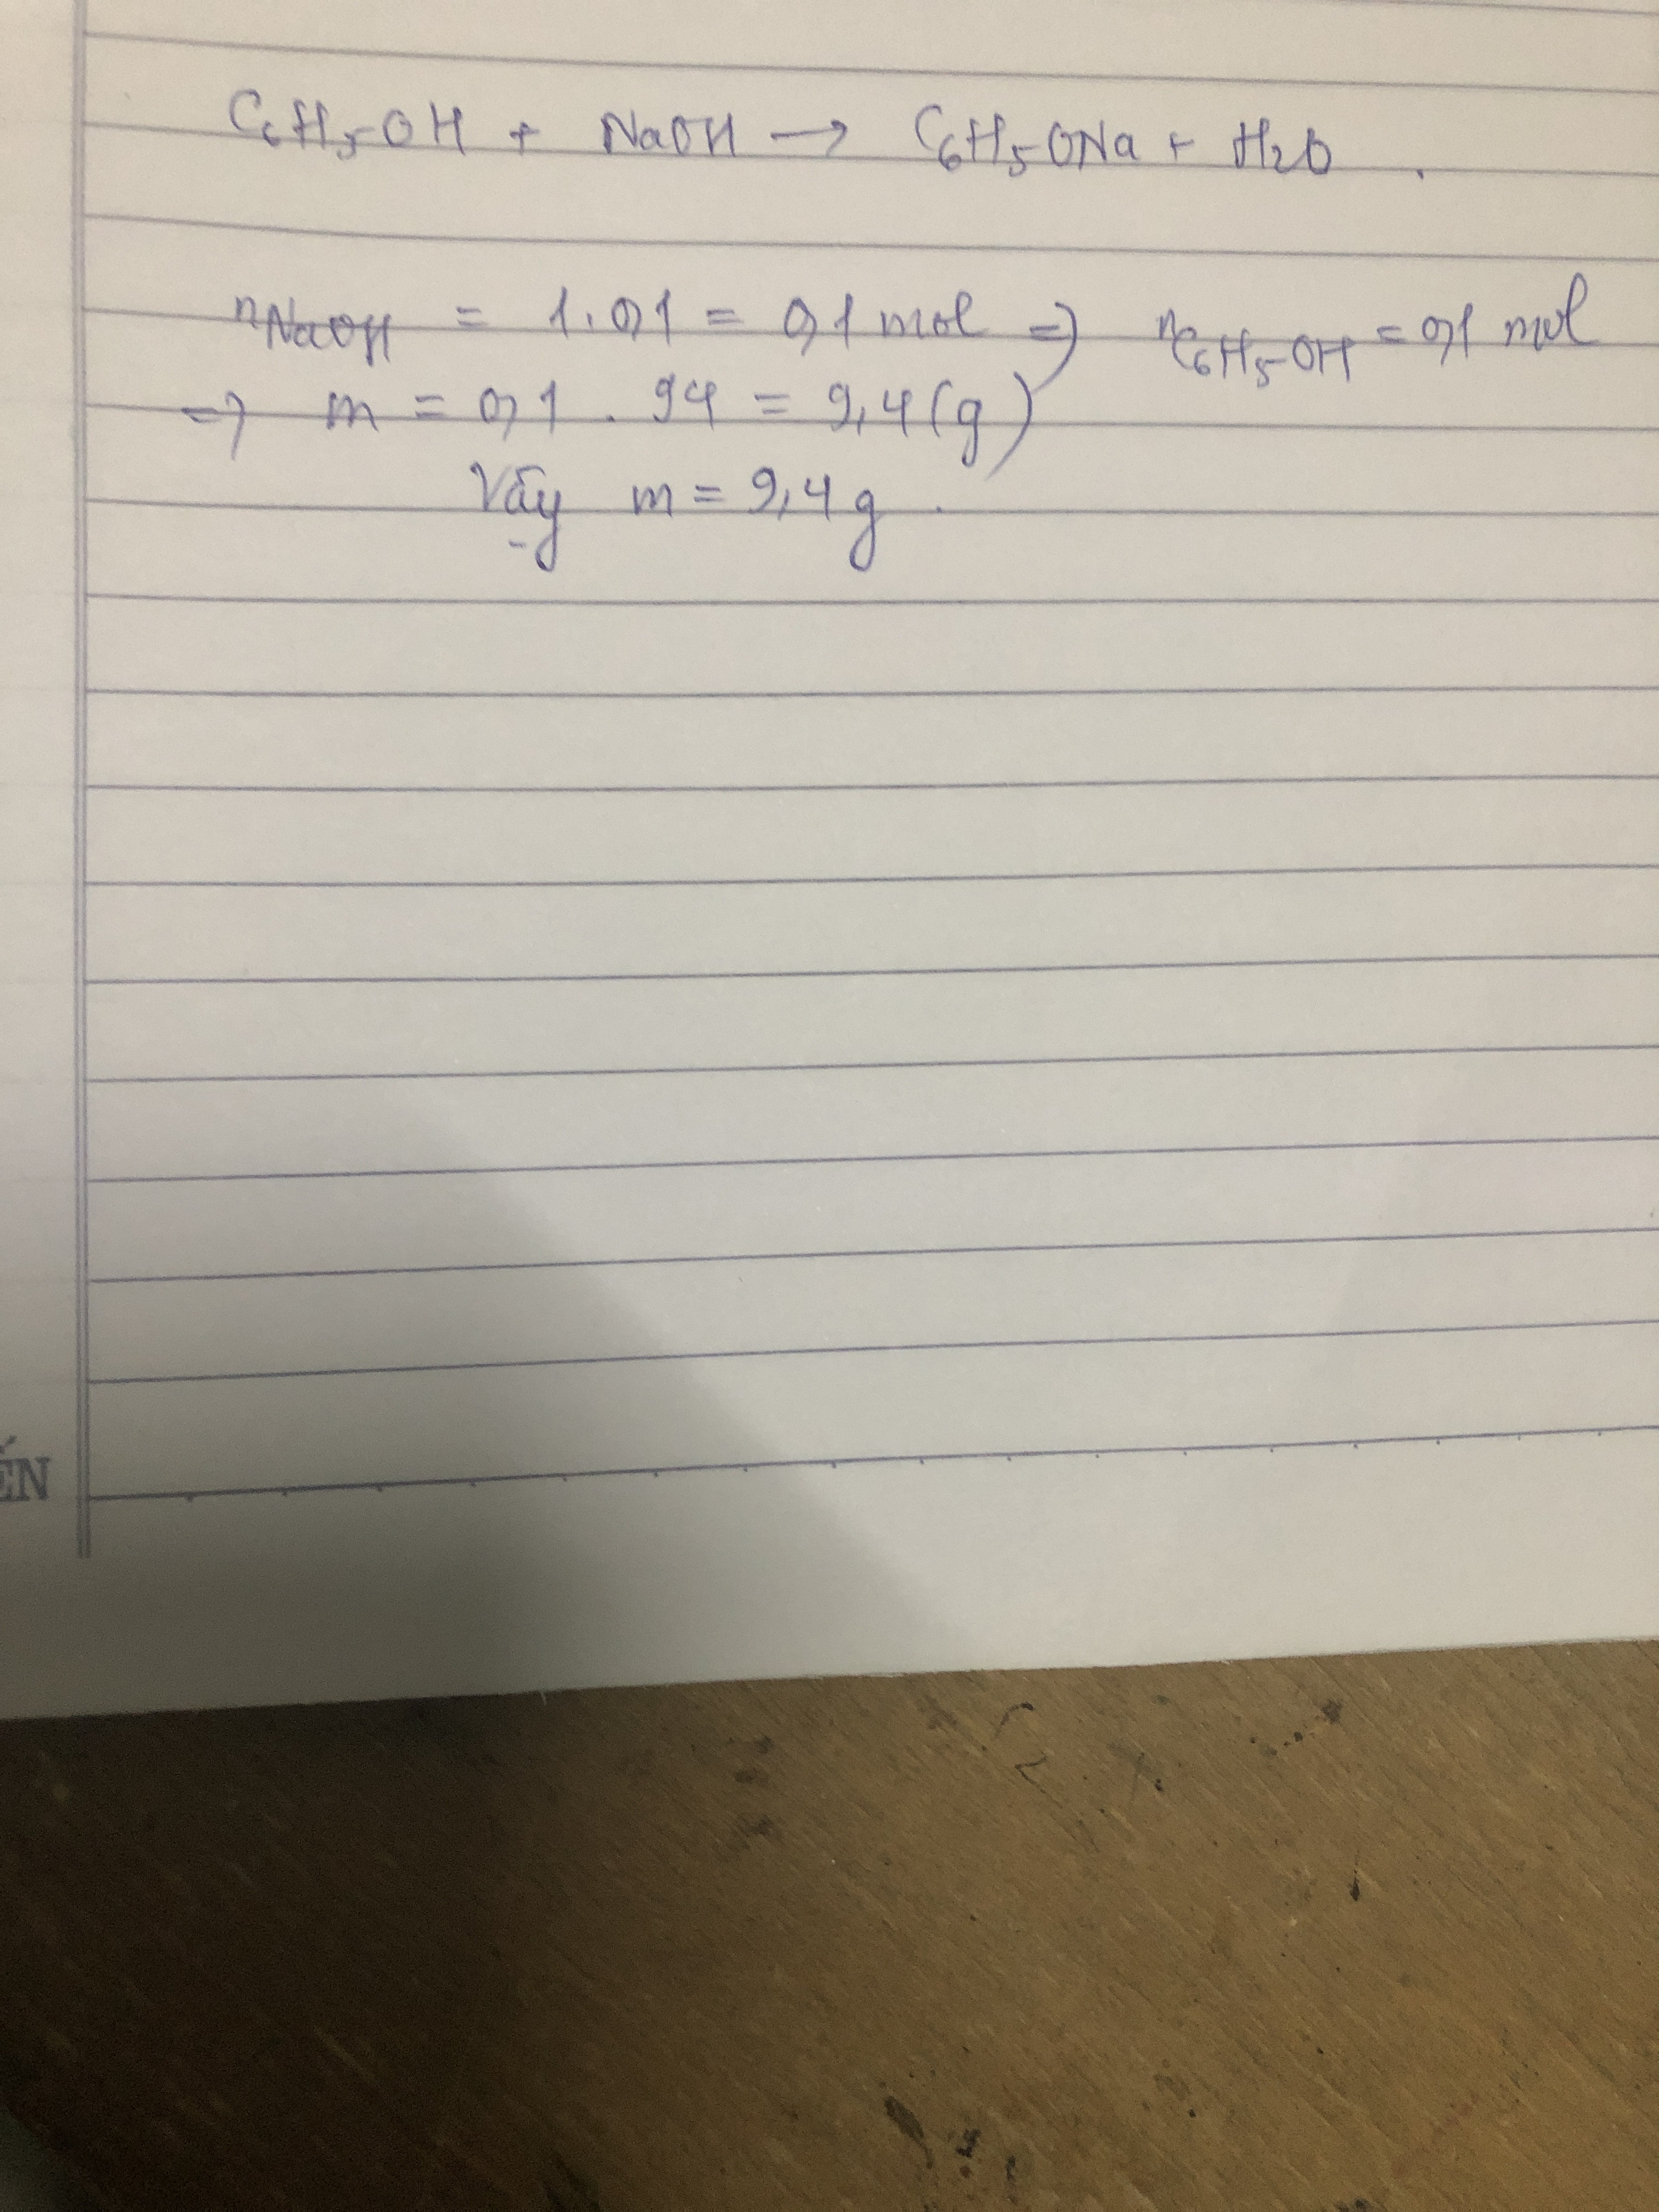 C6H5-OH + NaOH → C6H5ONa + H2O .
nNaOH = 1.0,1 = 0,1 mol => nC6H5-OH = 0,1 mol
=> m = 0,1 . 94 = 9,4 (g)
Vậy m = 9,4 g .
ẾN